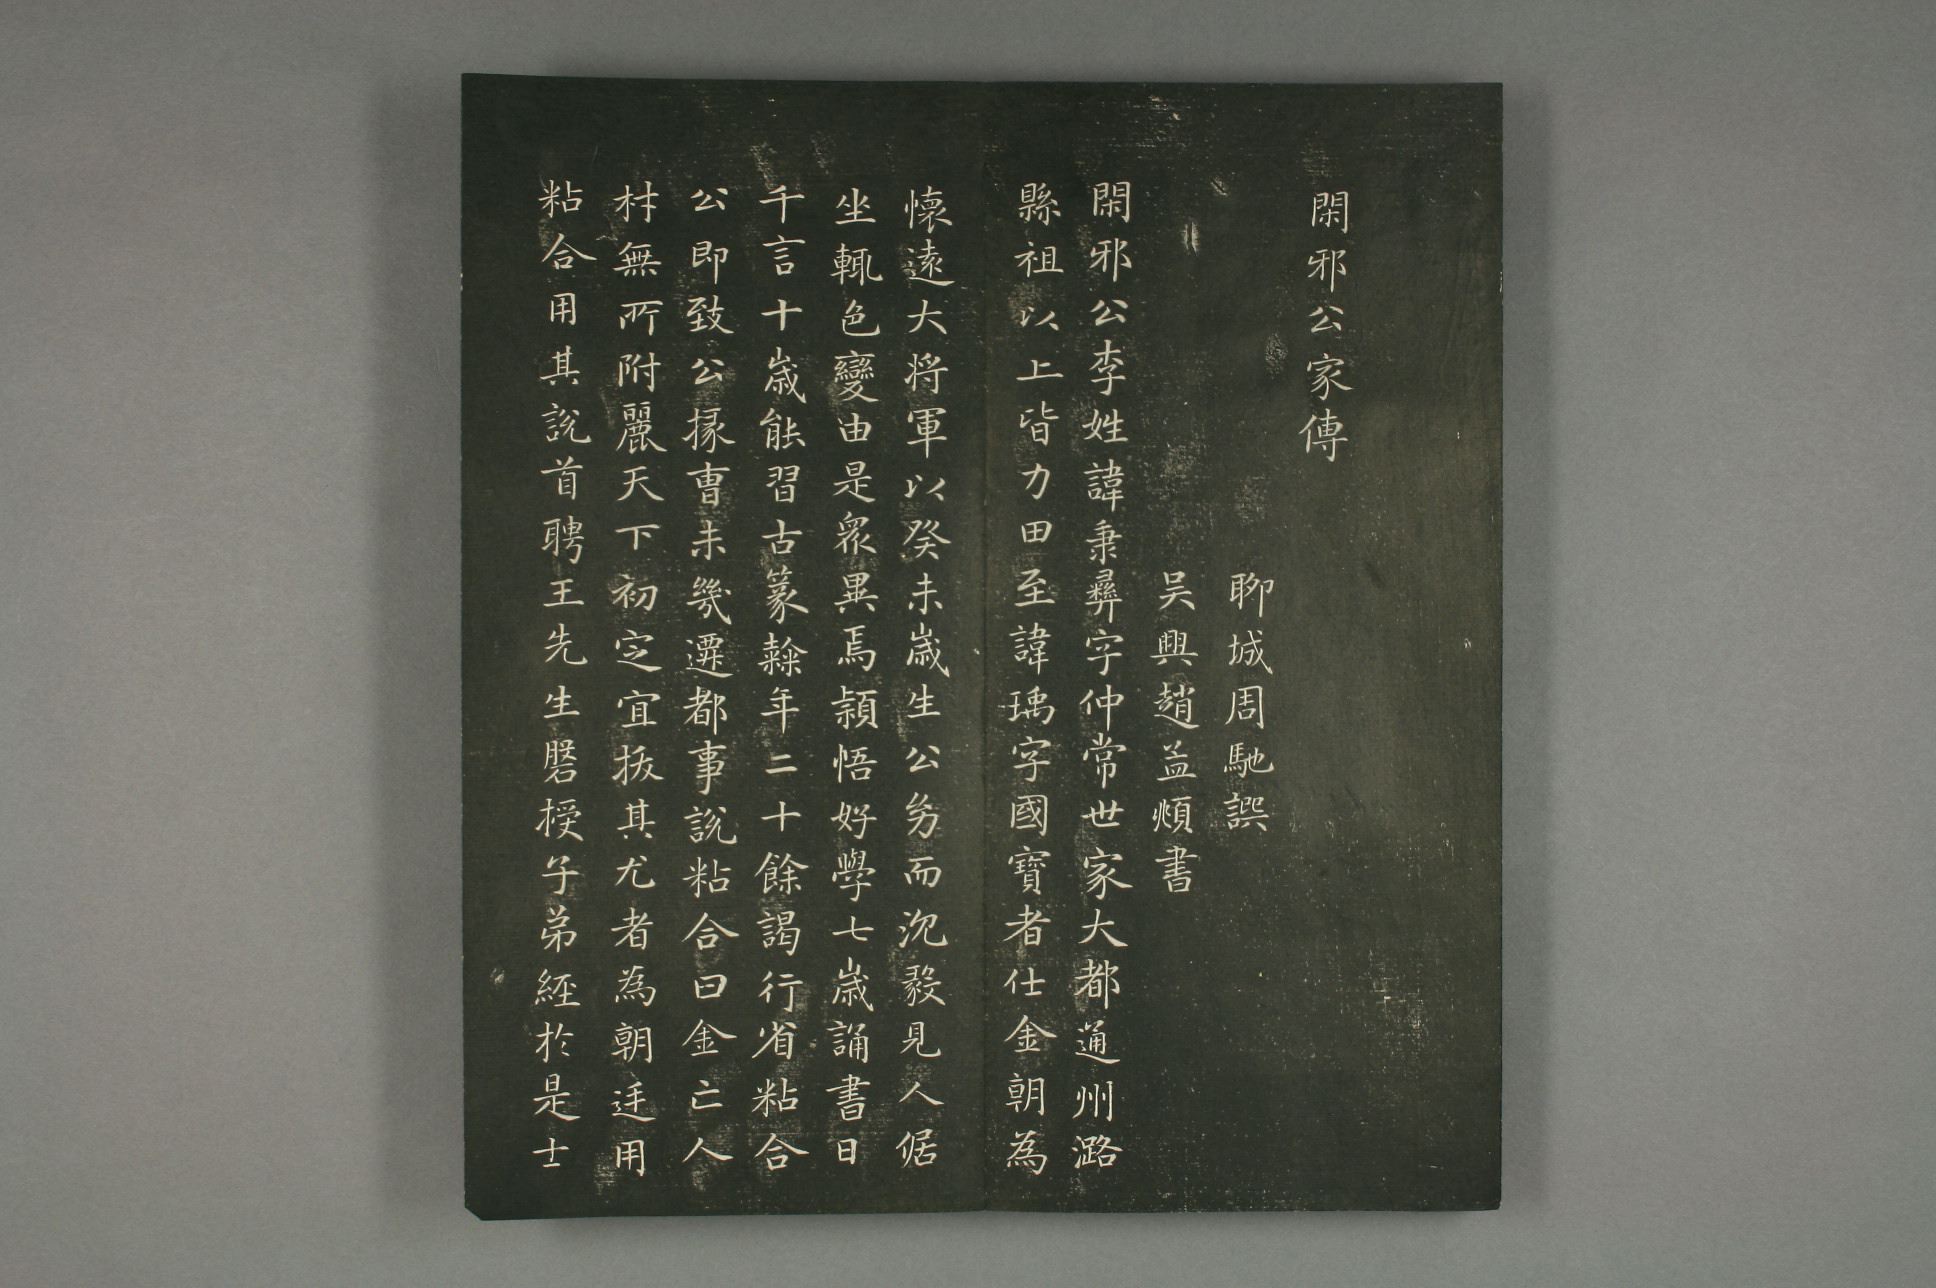 閑邪公家傳
聊城周馳譔
吴興趙孟頫書
閑邪公李姓諱秉彝字仲常世家大都通州潞
縣祖以上皆力田至諱瑀字國寶者仕金朝為
懷遠大将軍以癸未歳生公㓜而沉毅見人倨
坐輒色變由是衆異焉頴悟好學七歳誦書日
千言十歳能習古篆𣜩年二十餘謁行省粘合
公即致公掾曺未幾遷都事說粘合曰金亡人
材無所附麗天下初定宜拔其尤者為朝廷用
粘合用其說首聘王先生磐授子弟經於是士